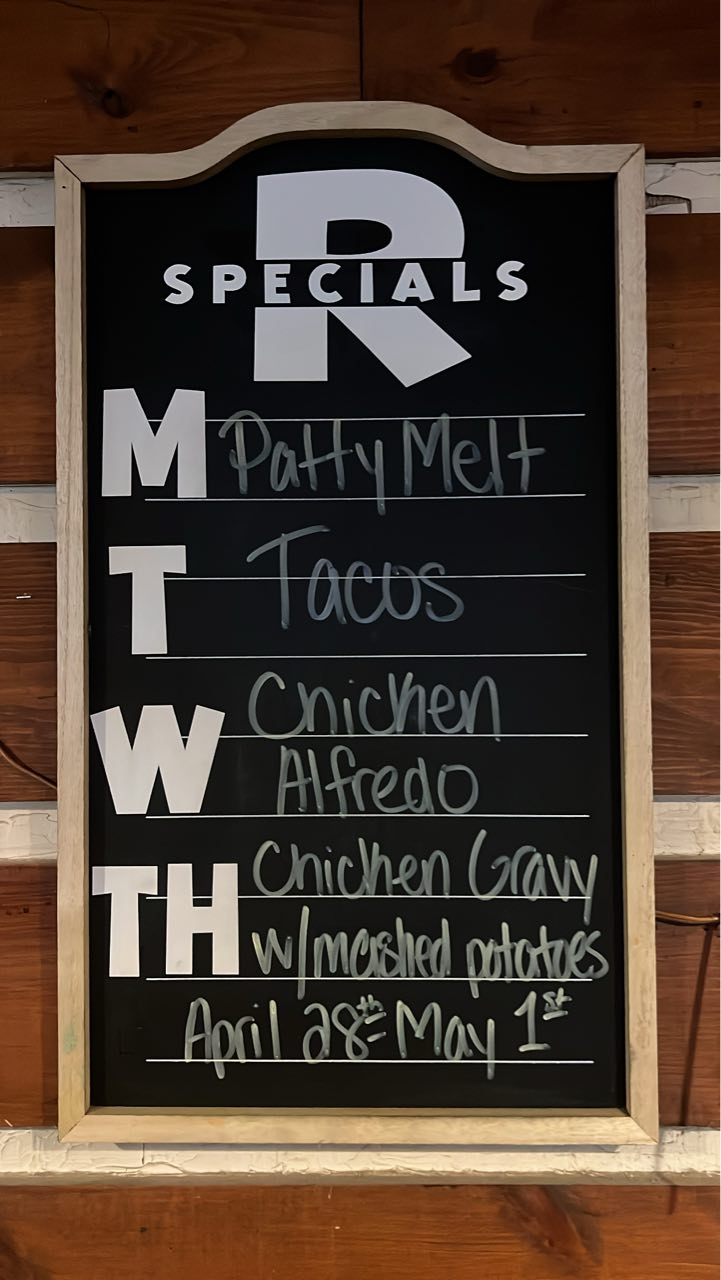 R
SPECIALS
M Patty Melt
T Tacos
W Chicken
Alfredo
TH Chicken Gravy
w/mashed potatoes
April 28th May 1st